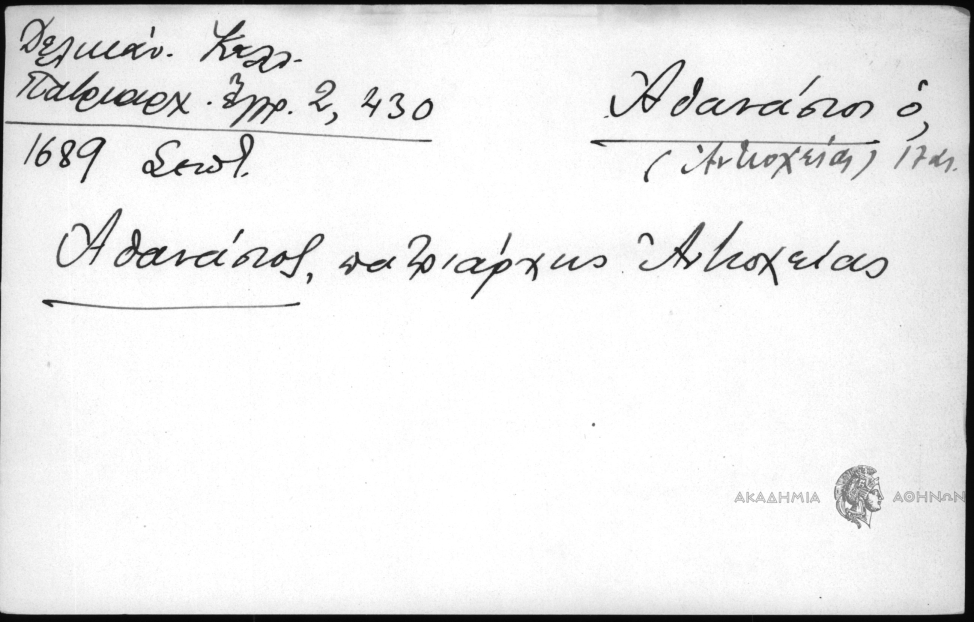 Δελικάν. Καλλ.
Πατριαρχ. Ἔγγρ. 2, 430
1689 Σεπτ.
Ἀθανάσιος ὁ,
(Ἀντιοχείας) 17 αι.
Ἀθανάσιος, πατριάρχης Ἀντιοχείας
ΑΚΑΔΗΜΙΑ ΑΘΗΝΩΝ